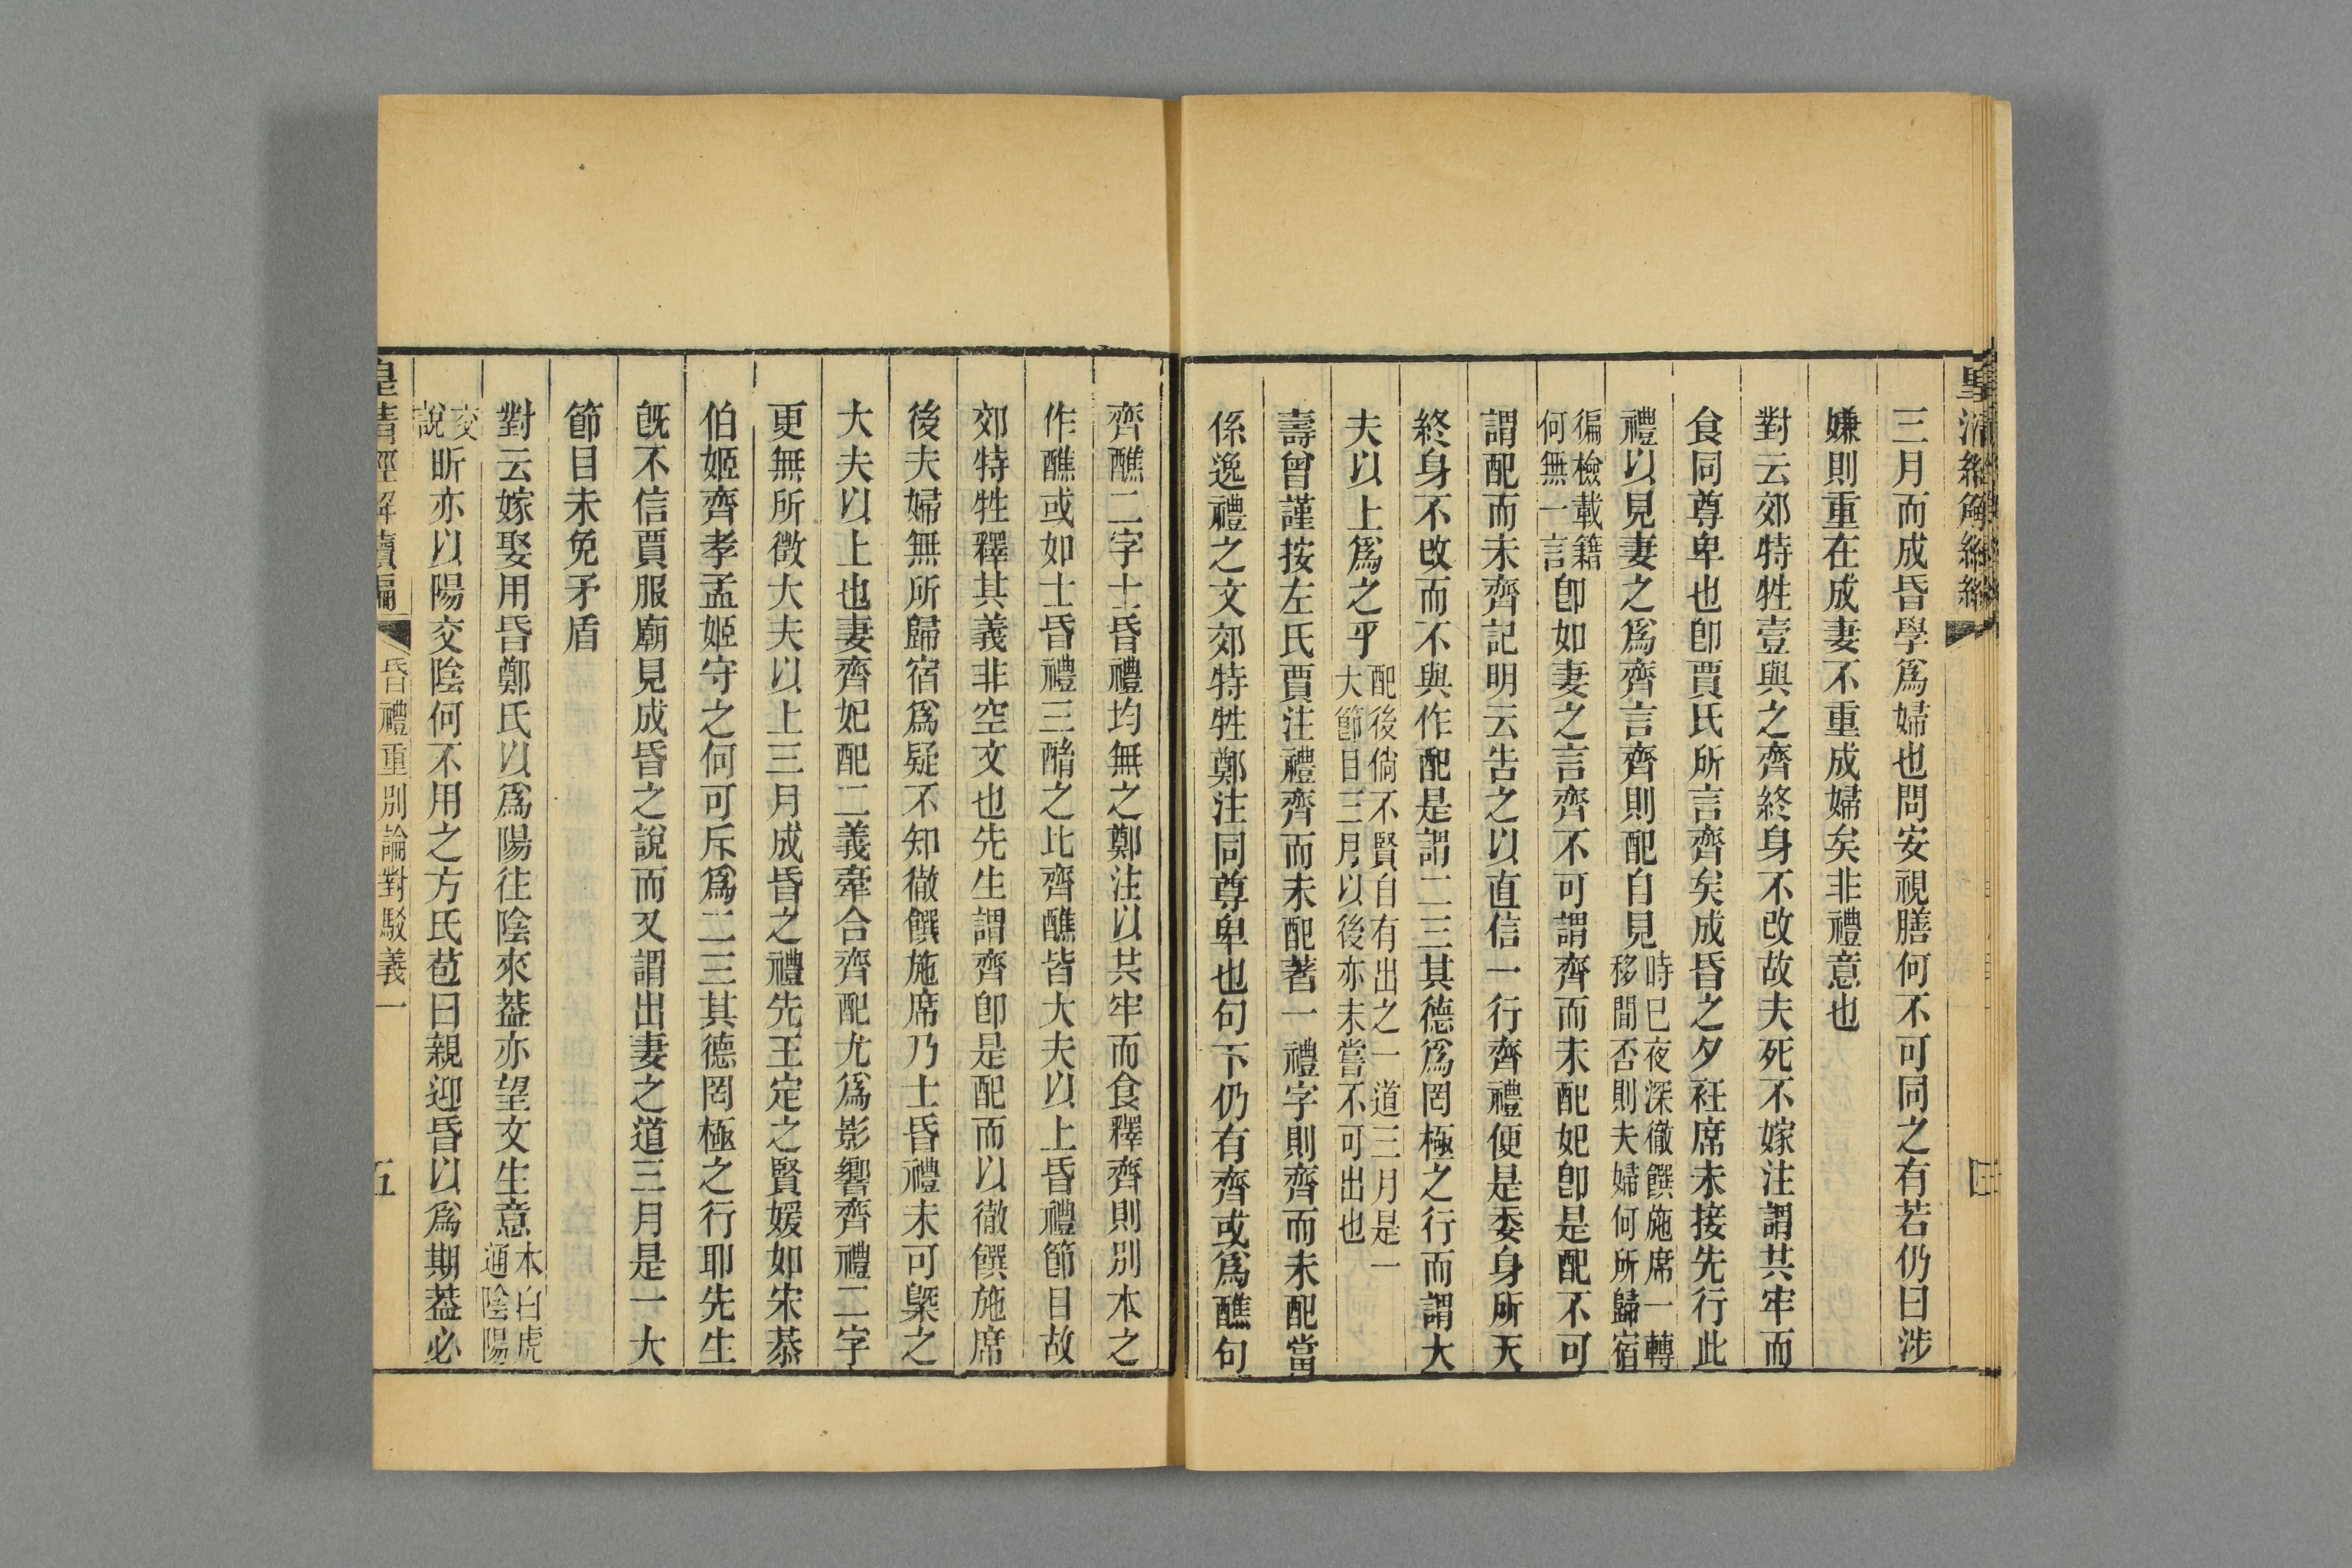 三月而成昏學爲婦也問安視膳何不可同之有若仍曰涉
嫌則重在成妻不重成婦矣非禮意也
對云郊特牲壹與之齊終身不改故夫死不嫁注謂共牢而
食同尊卑也卽賈氏所言齊矣成昏之夕衽席未接先行此
禮以見妻之爲齊言齊則配自見時已夜深徹饌施席一轉
移閒否則夫婦何所歸宿
徧檢載籍
何無一言卽如妻之言齊不可謂齊而未配妃卽是配不可
謂配而未齊記明云告之以直信一行齊禮便是委身所天
終身不改而不與作配是謂二三其德爲罔極之行而謂大
夫以上爲之乎配後倘不賢自有出之一道三月是一
大節目三月以後亦未嘗不可出也
壽曾謹按左氏賈注禮齊而未配著一禮字則齊而未配當
係逸禮之文郊特牲鄭注同尊卑也句下仍有齊或爲醮句
齊醮二字士昏禮均無之鄭注以共牢而食釋齊則別本之
作醮或如士昏禮三酳之比齊醮皆大夫以上昏禮節目故
郊特牲釋其義非空文也先生謂齊卽是配而以徹饌施席
後夫婦無所歸宿爲疑不知徹饌施席乃士昏禮未可槩之
大夫以上也妻齊妃配二義牽合齊配尤爲影響齊禮二字
更無所徵大夫以上三月成昏之禮先王定之賢媛如宋恭
伯姬齊孝孟姬守之何可斥爲二三其德罔極之行耶先生
旣不信賈服廟見成昏之說而又謂出妻之道三月是一大
節目未免矛盾
對云嫁娶用昏鄭氏以爲陽往陰來葢亦望文生意本白虎
通陰陽
交
說昕亦以陽交陰何不用之方氏苞曰親迎昏以爲期葢必
皇清經解續編 昏禮重別論對駁義一 五